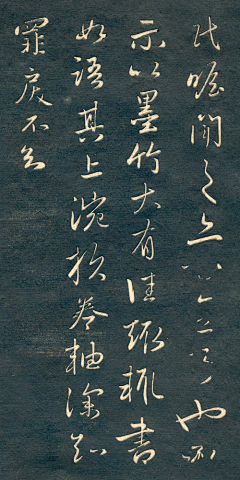 代贍聞之上
也所
示以墨竹大有佳趣輒書
如語其上涴於卷軸深知
罪戾不